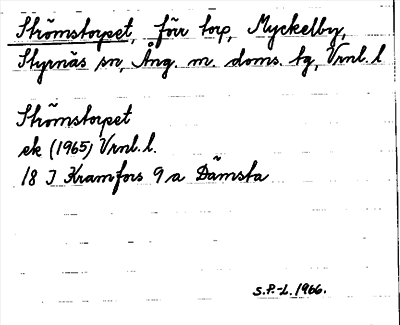 Strömstorpet, förr torp, Myckelby,
Styrnäs sn, Ång. m. doms. tg, Vrnl. l
Strömstorpet
ek (1965) Vrnl. l.
18 J Kramfors 9 a Dämsta
S.P.-L. 1966.